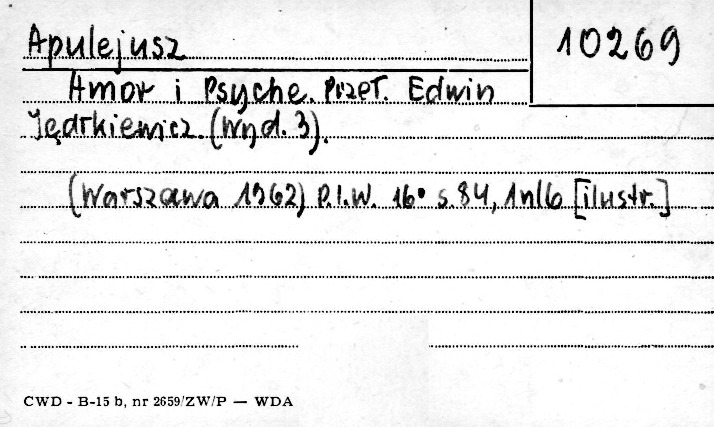 Apulejusz
10269
Amor i Psyche. Przeł. Edwin
Jędrkiewicz. (Wyd. 3).
(Warszawa 1962) P.I.W. 16° s. 84, 1nlb [ilustr.]
CWD - B-15 b, nr 2659/ZW/P — WDA